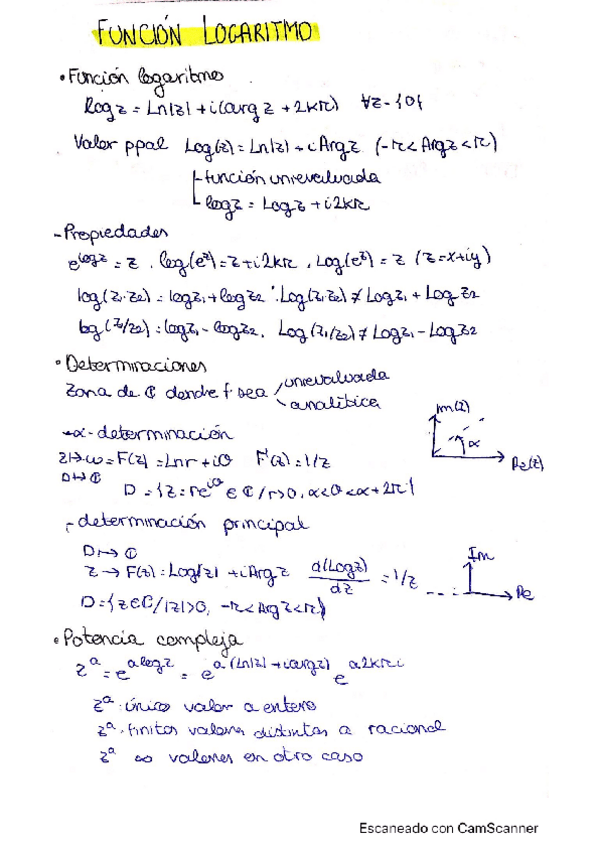 FUNCIÓN LOGARITMO
• Función logaritmo
log z = Ln|z| + i(arg z + 2kπ) ∀z - {0}
Valor ppal Log(z) = Ln|z| + i Arg z (-π < Arg z < π)
función univaluada
log z = Log z + i2kπ
- Propiedades
e^{log z} = z . log(e^z) = z + i2kπ . Log(e^z) = z (z = x+iy)
log(z₁·z₂) = log z₁ + log z₂ · Log(z₁·z₂) ≠ Log z₁ + Log z₂
log(z₁/z₂) = log z₁ - log z₂. Log(z₁/z₂) ≠ Log z₁ - Log z₂
• Determinaciones
Zona de ℂ donde f sea univaluada
analítica
Im(z)
α
Re(z)
- α-determinación
z ↦ w = F(z) = Ln r + iθ F'(z) = 1/z
D ↦ ℂ
D = {z = re^{iθ} ∈ ℂ / r>0, α<θ<α+2π}
- determinación principal
D ↦ ℂ
z → F(z) = Log|z| + i Arg z d(Log z)/dz = 1/z
Im
Re
D = {z ∈ ℂ / |z|>0, -π < Arg z < π}
• Potencia compleja
z^a = e^{a log z} = e^{a(Ln|z| + i arg z)} e^{a2kπi}
z^a · único valor a entero
z^a · finitos valores distintos a racional
z^a ∞ valores en otro caso
Escaneado con CamScanner